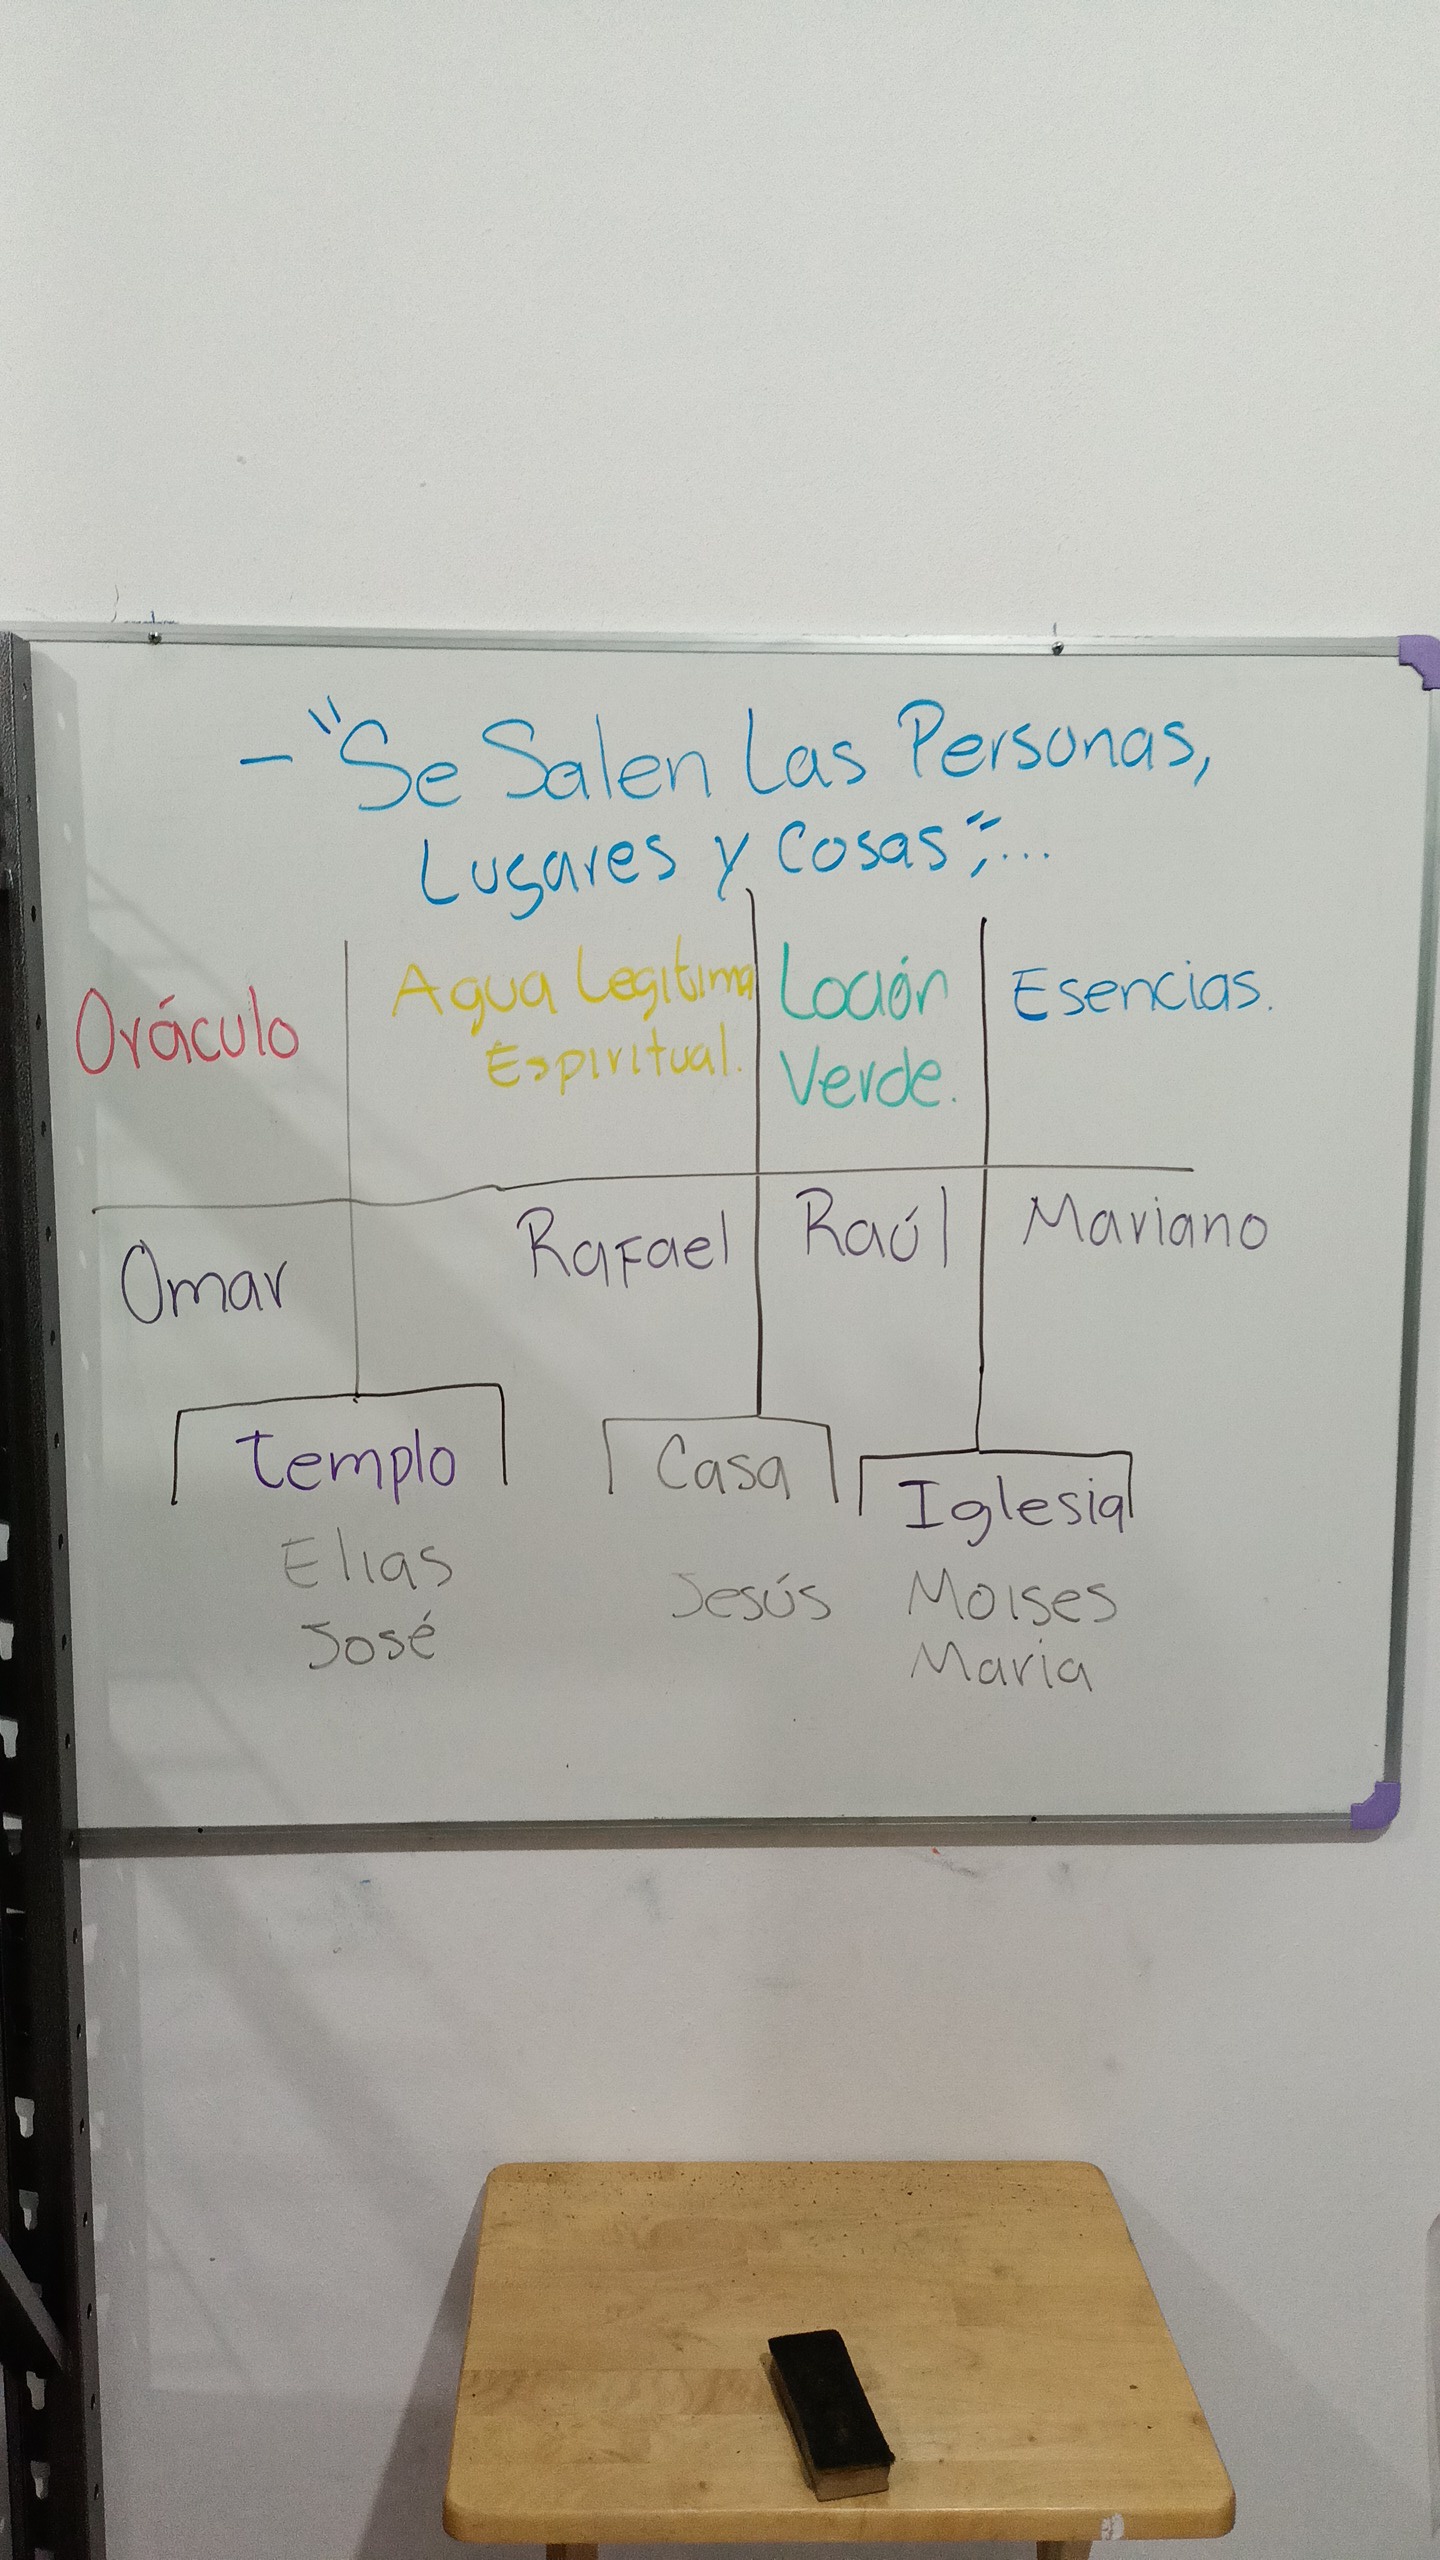 - "Se Salen Las Personas,
Lugares y Cosas";...
Oráculo
Agua Legitima
Espiritual.
Loción
Verde.
Esencias.
Omar
Rafael
Raúl
Mariano
Templo
Elias
José
Casa
Jesús
Iglesia
Moises
Maria